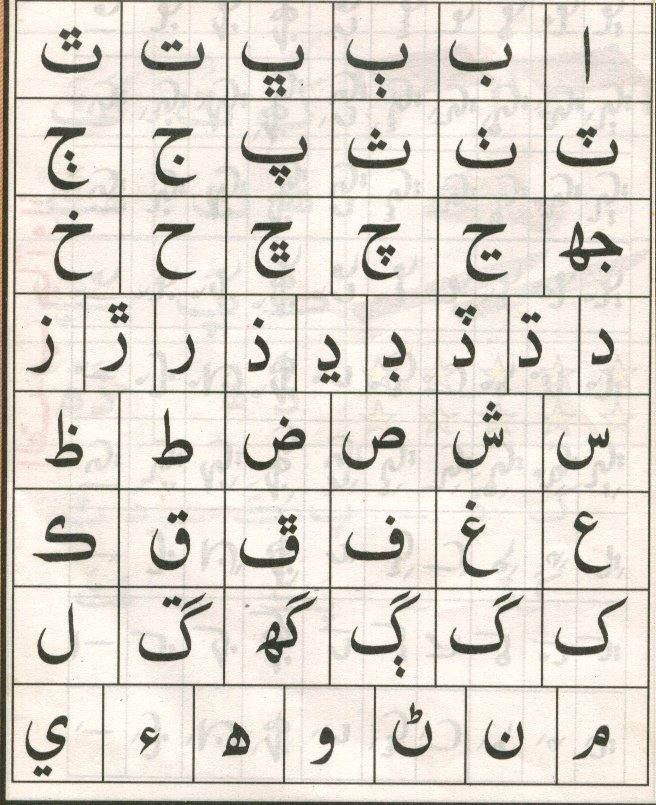 ا ب ٻ ڀ ت ٿ
ٽ ٺ ث پ ج ڄ
جھ ڃ چ ڇ ح خ
د ڌ ڏ ڊ ڍ ذ ر ڙ ز
س ش ص ض ط ظ
ع غ ف ڦ ق ڪ
ک گ ڳ گھ ڱ ل
م ن ڻ و ھ ء ي